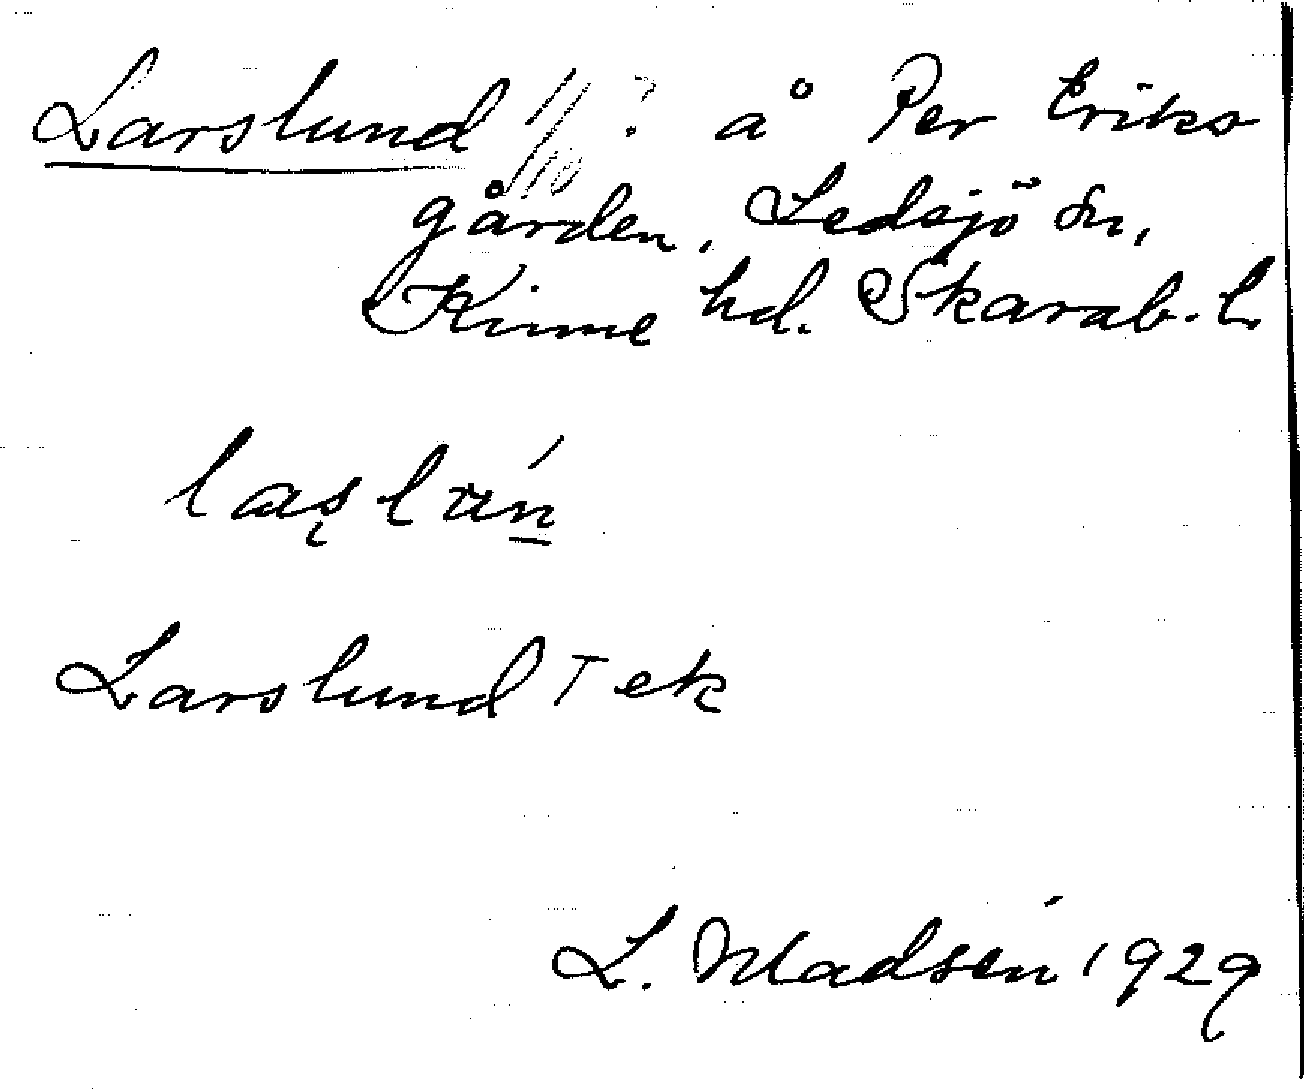 Larslund 1/10 ? å Per Eriks
gården, Ledsjö sn,
Kinne hd. Skarab. L.
Larslund T ek
L. Madsén 1929